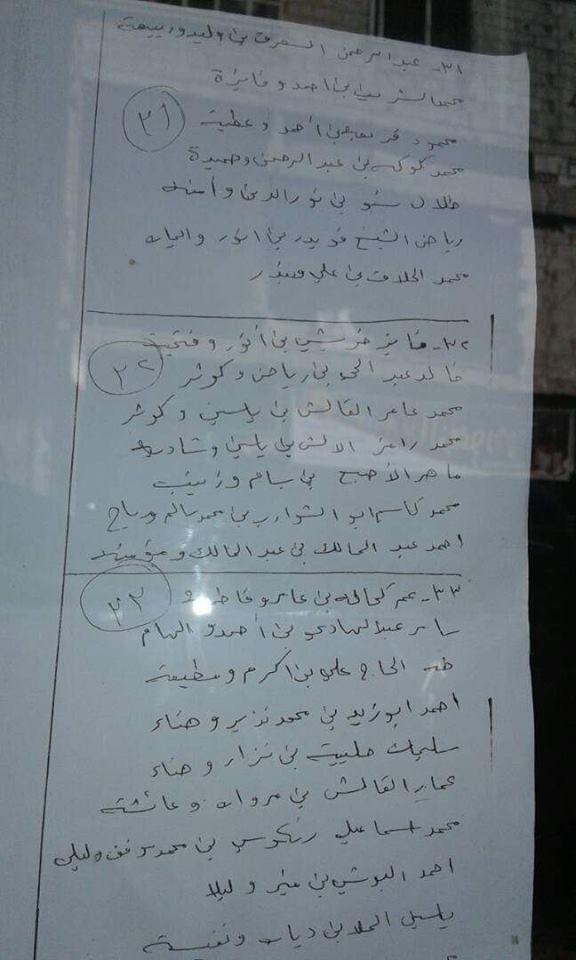 ٣١- عبدالرحمن السمرة بن وليد وربيعة
محمد بن احمد وفايزة
محمود بن أحمد وعطية
٣١
محمد كوكه بن عبد الرحمن وحميدة
طلال شو بن نور الدين وأمينه
رياض الشيخ قويدر بن انور واليان
محمد الحلاق بن علي
٣٢- فايز خريشي بن أنور وفتحية
خالد عبد الحي بن رياض وكوثر
٣٢
محمد عامر القالش بن ياسين وكوثر
محمد رامز الالش بن ياسين وشاديه
ماهر الأصبح بن بسام وزينب
محمد قاسم ابو الشوارب بن محمد سالم ورباح
احمد عبد المالك بن عبد المالك ومؤمنه
٣٣- عمر كحاله بن عامر وفاطمة
٣٣
سامر عبدالهادي بن أحمد والهام
طه الحاج علي بن اكرم ومطيعة
احمد ابوزيد بن محمد نذير وهناء
سليمان حليمة بن نزار وهناء
عمار القالش بن مروان وعائشة
محمد اسماعيل رنكوسي بن محمد موفق وليلى
احمد البوشي بن منير وليلا
باسل الملا بن دياب ونفيسة